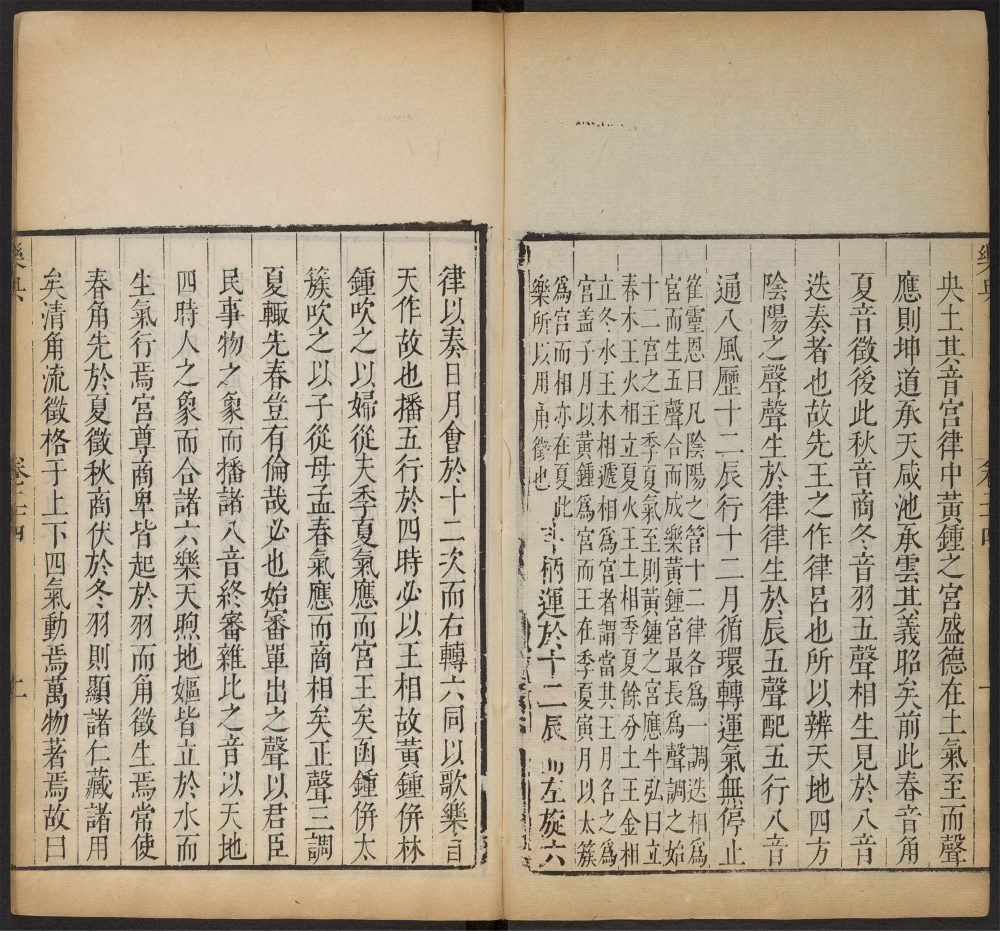 樂典
卷三十四
央土其音宮律中黃鍾之宮盛德在土氣至而聲
應則坤道承天咸池承雲其義昭矣前此春音角
夏音徵後此秋音商冬音羽五聲相生見於八音
迭奏者也故先王之作律呂也所以辨天地四方
陰陽之聲聲生於律律生於辰五聲配五行八音
通八風歷十二辰行十二月循環轉運氣無停止
崔靈恩曰凡陰陽之管十二律各爲一調迭相爲
宮而生五聲合而成樂黃鍾宮最長爲聲調之始
十二宮之主季夏氣至則黃鍾之宮應牛弘曰立
春木王火相立夏火王土相季夏餘分土王金相
立冬水王木相遞相爲宮者謂當其王月名之爲
宮盖子月以黃鍾爲宮而王在季夏寅月以太簇
爲宮而相亦在夏此
樂所以用角徵也
斗柄運於十二辰而左旋六
律以奏日月會於十二次而右轉六同以歌樂自
天作故也播五行於四時必以王相故黃鍾倂林
鍾吹之以婦從夫季夏氣應而宮王矣函鍾倂太
簇吹之以子從母孟春氣應而商相矣正聲三調
夏輙先春豈有倫哉必也始審單出之聲以君臣
民事物之象而播諸八音終審雜比之音以天地
四時人之象而合諸六樂天煦地嫗皆立於水而
生氣行焉宮尊商卑皆起於羽而角徵生焉常使
春角先於夏徵秋商伏於冬羽則顯諸仁藏諸用
矣清角流徵格于上下四氣動焉萬物著焉故曰
樂典
卷三十四
十一